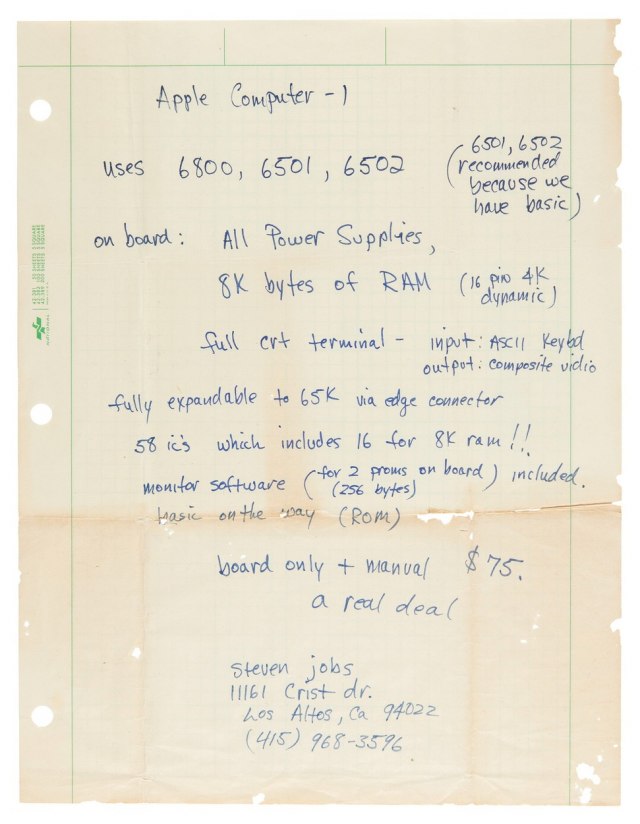 Apple Computer - 1
uses 6800, 6501, 6502 (6501, 6502
recommended
because we
have basic)
on board: All Power Supplyies,
8K bytes of RAM (16 pin 4K
dynamic)
full crt terminal - input: ASCII Keybd
output: composite vidio
fully expandable to 65K via edge connector
58 ic's which includes 16 for 8K ram!!
monitor software (for 2 proms on board) included.
(256 bytes)
basic on the way (ROM)
board only + manual $75.
a real deal
steven jobs
11161 Crist dr.
Los Altos, Ca 94022
(415) 968-3596